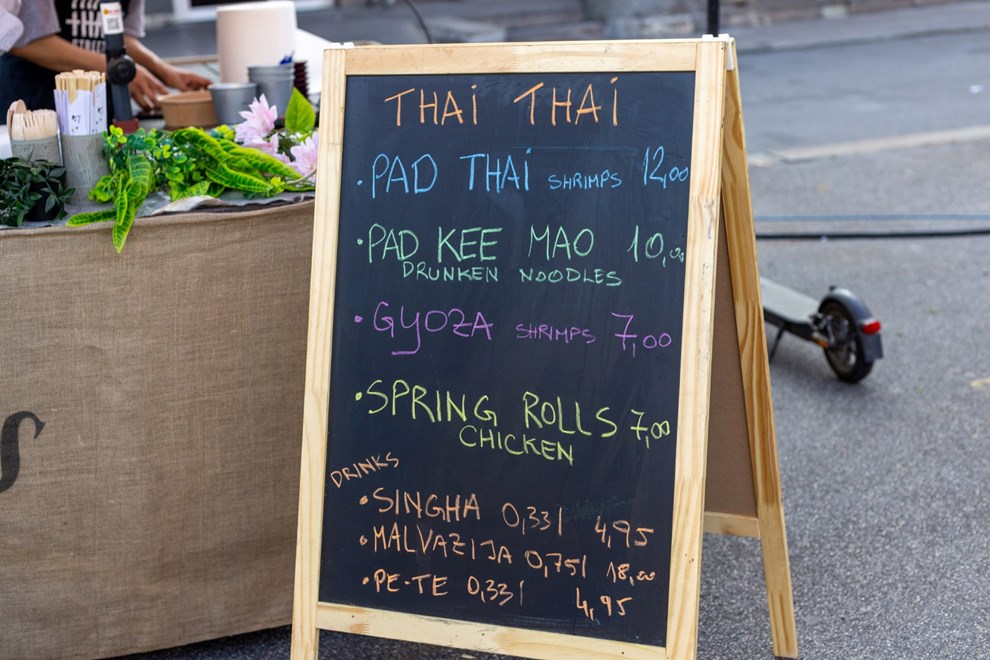 THAi THAi
• PAD THAi SHRIMPS 12,00
• PAD KEE MAO 10,00
DRUNKEN NOODLES
• GYOZA SHRIMPS 7,00
• SPRING ROLLS 7,00
CHICKEN
DRINKS
• SINGHA 0,33l 4,95
• MALVAZIJA 0,75l 18,00
• PE-TE 0,33l 4,95